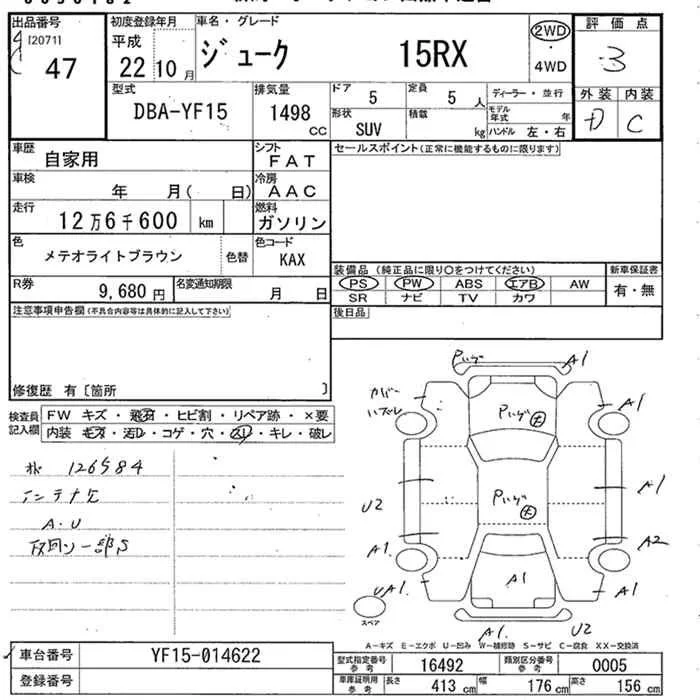 出品番号
[2071]
47
初度登録年月
平成
22 10月
車名・グレード
ジューク 15RX
2WD
・
4WD
評価点
3
外装 内装
D C
型式
DBA-YF15
排気量
1498
CC
ドア
5
定員
5人
ディーラー・並行
形状
SUV
積載
kg
モデル年式 年
ハンドル 左・右
車歴
自家用
シフト
FAT
セールスポイント(正常に機能するものに限ります)
車検
年 月( 日)
冷房
AAC
走行
12万6千600 km
燃料
ガソリン
色
メテオライトブラウン
色替
色コード
KAX
装備品 (純正品に限り○をつけてください)
新車保証書
PS PW ABS エアB AW
SR ナビ TV カワ
有・無
R券
9,680円
名変通知期限
月 日
注意事項申告欄(不具合内容等は具体的に記入して下さい)
後日品
修復歴 有〔箇所 〕
検査員
記入欄
FW キズ・飛石・ヒビ割・リペア跡・×要
内装 キズ・汚レ・コゲ・穴・スレ・キレ・破レ
126584
インテナケ
A.U
一部S
Pハゲ
A1
カバー
ハズレ
Pハゲ 大
A1
Pハゲ 大
A1
U2
A1
A2
A1
UA1
A1
スペア
A1
U2
A-キズ E-エクボ U-凹み W-補修跡 S-サビ C-腐食 XX-交換済
車台番号
YF15-014622
登録番号
型式指定番号
参考
16492
類別区分番号
参考
0005
車庫証明用
参考
長さ
413 cm
幅
176 cm
高さ
156 cm